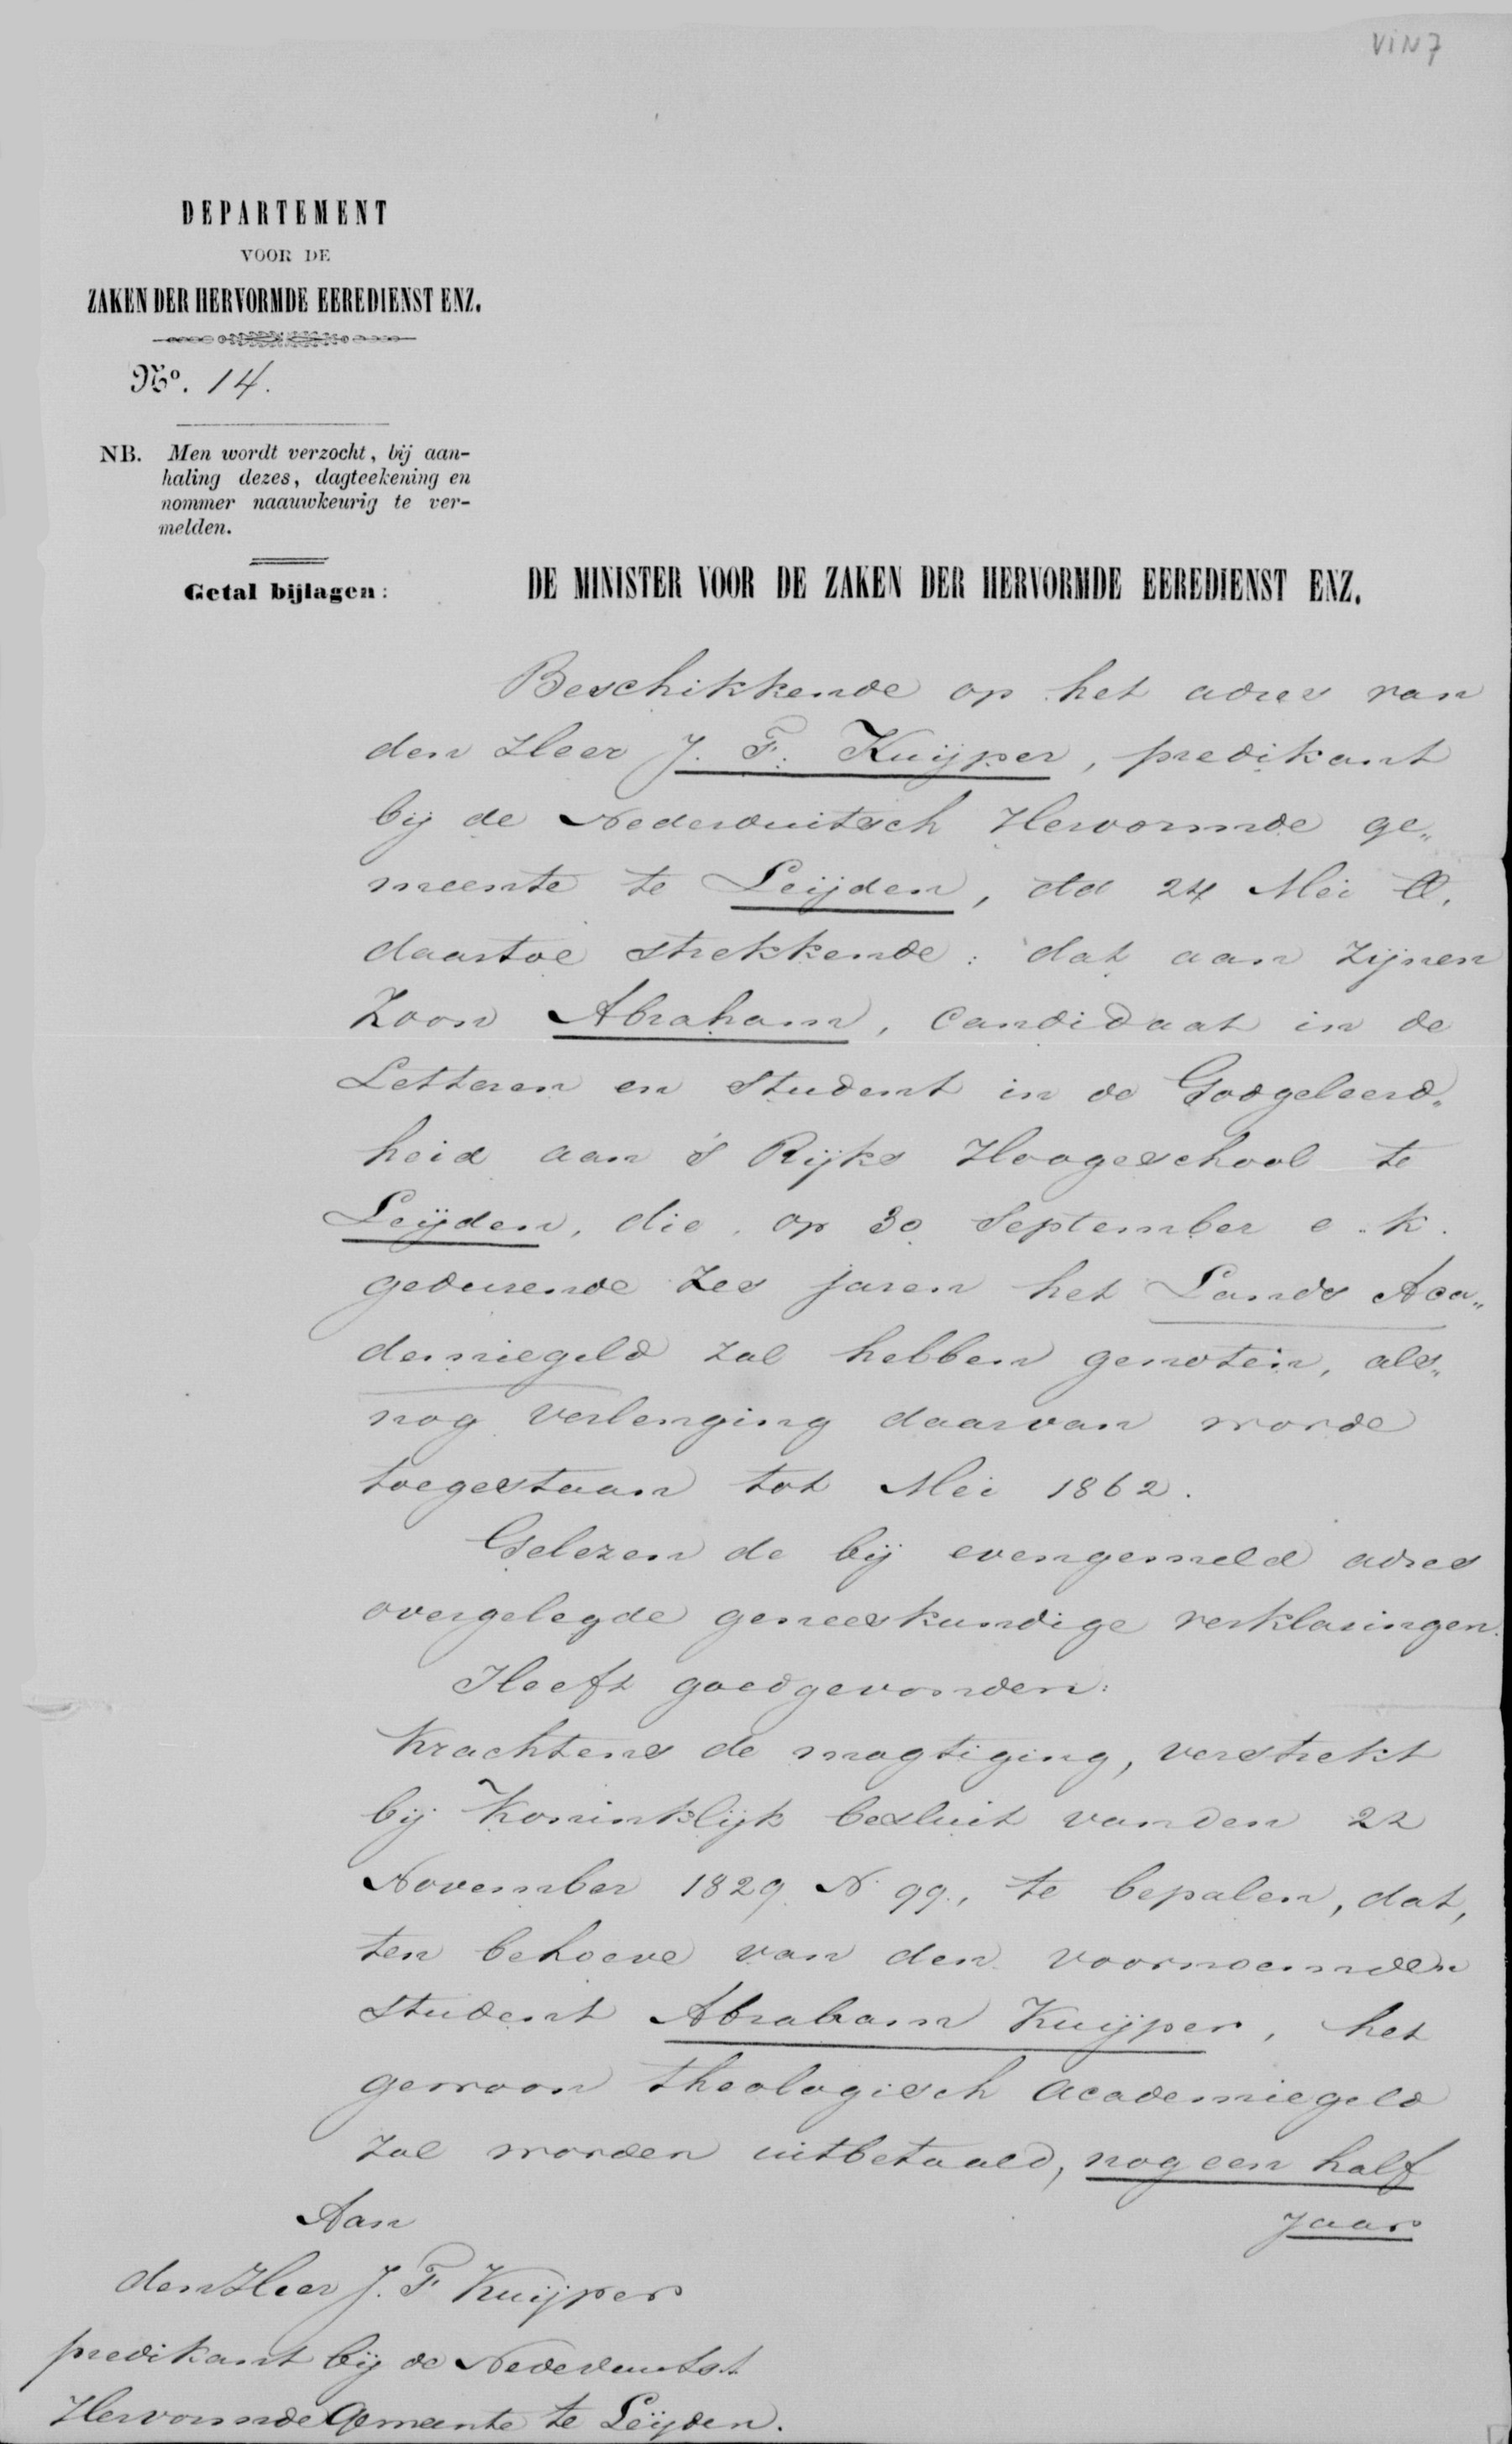 VIN7
DEPARTEMENT
VOOR DE
ZAKEN DER HERVORMDE EEREDIENST ENZ.
No. 14.
NB. Men wordt verzocht, bij aan-
haling dezes, dagteekening en
nommer naauwkeurig te ver-
melden.
Getal bijlagen:
DE MINISTER VOOR DE ZAKEN DER HERVORMDE EEREDIENST ENZ.
Beschikkende op het adres van
den Heer J. F. Kuijper, predikant
bij de Nederduitsch Hervormde ge„
meente te Leijden, dd 24 Mei ll.
daartoe strekkende: dat aan zijnen
Zoon Abraham, Candidaat in de
Letteren en Student in de Godgeleerd„
heid aan 's Rijks Hoogeschool te
Leijden, die op 30 September e.k.
gedurende zes jaren het Lands Aca„
demiegeld zal hebben genoten, als„
nog verlenging daarvan worde
toegestaan tot Mei 1862.
Gelezen de bij evengemeld adres
overgelegde geneeskundige verklaringen.
Heeft goedgevonden:
Krachtens de magtiging, verstrekt
bij Koninklijk besluit van den 22
November 1829 N. 99., te bepalen, dat,
ten behoeve van den voornoemden
student Abraham Kuijper, het
gewoon theologisch academiegeld
zal worden uitbetaald, nog een half
jaar
Aan
den Heer J. F. Kuijper
predikant bij de Nederduitst
Hervormde Gemeente te Leijden.